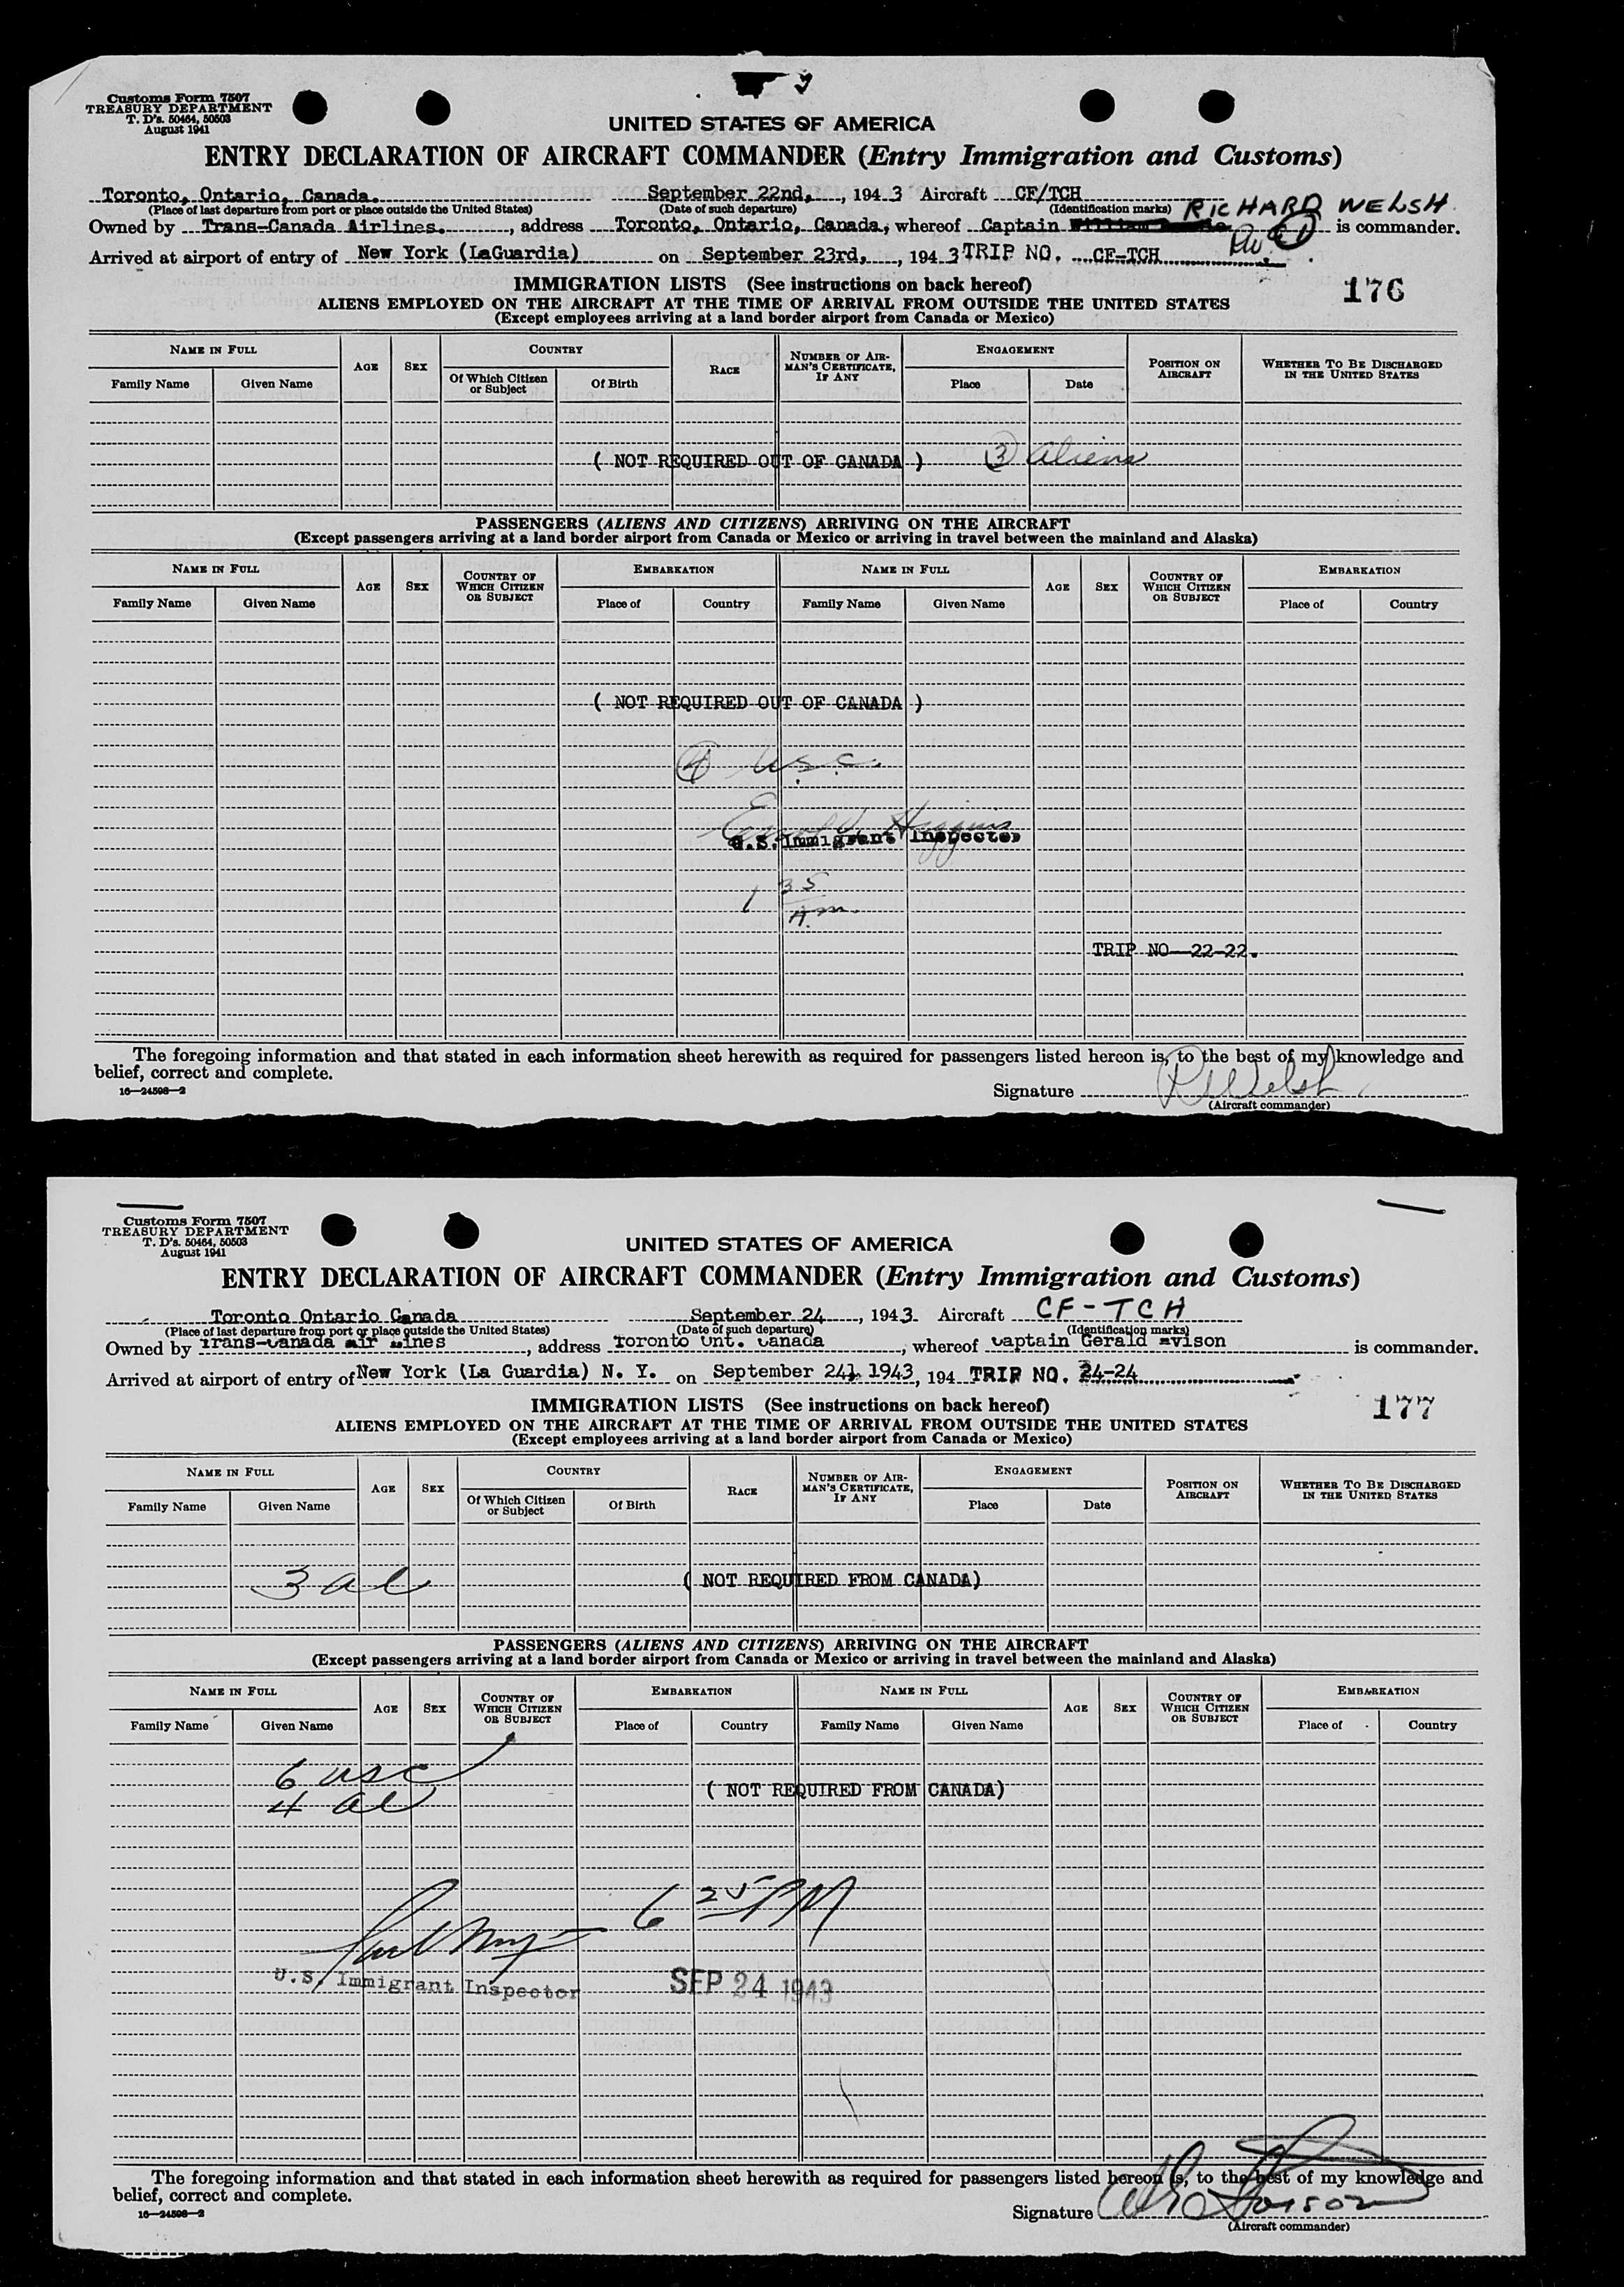 Customs Form 7507
TREASURY DEPARTMENT
T. D's. 50464, 50503
August 1941
UNITED STATES OF AMERICA
ENTRY DECLARATION OF AIRCRAFT COMMANDER (Entry Immigration and Customs)
Toronto, Ontario, Canada. September 22nd, , 1943 Aircraft CF/TCH
(Place of last departure from port or place outside the United States) (Date of such departure) (Identification marks) RICHARD WELSH
Owned by Trans-Canada Airlines. , address Toronto, Ontario, Canada, whereof Captain William is commander.
Arrived at airport of entry of New York (LaGuardia) on September 23rd, , 1943 TRIP NO. CF-TCH R.W.
IMMIGRATION LISTS (See instructions on back hereof) 176
ALIENS EMPLOYED ON THE AIRCRAFT AT THE TIME OF ARRIVAL FROM OUTSIDE THE UNITED STATES
(Except employees arriving at a land border airport from Canada or Mexico)
NAME IN FULL AGE SEX COUNTRY RACE NUMBER OF AIRMAN'S CERTIFICATE, IF ANY ENGAGEMENT POSITION ON AIRCRAFT WHETHER TO BE DISCHARGED IN THE UNITED STATES
Family Name Given Name Of Which Citizen or Subject Of Birth Place Date
( NOT REQUIRED OUT OF CANADA ) 3 aliens
PASSENGERS (ALIENS AND CITIZENS) ARRIVING ON THE AIRCRAFT
(Except passengers arriving at a land border airport from Canada or Mexico or arriving in travel between the mainland and Alaska)
NAME IN FULL AGE SEX COUNTRY OF WHICH CITIZEN OR SUBJECT EMBARKATION NAME IN FULL AGE SEX COUNTRY OF WHICH CITIZEN OR SUBJECT EMBARKATION
Family Name Given Name Place of Country Family Name Given Name Place of Country
( NOT REQUIRED OUT OF CANADA )
4 U.S.C.
Higgins
U.S. Immigrant Inspector
1 35 Am.
TRIP NO 22-22.
The foregoing information and that stated in each information sheet herewith as required for passengers listed hereon is, to the best of my knowledge and
belief, correct and complete.
16—24598—2
Signature R Welsh
(Aircraft commander)
Customs Form 7507
TREASURY DEPARTMENT
T. D's. 50464, 50503
August 1941
UNITED STATES OF AMERICA
ENTRY DECLARATION OF AIRCRAFT COMMANDER (Entry Immigration and Customs)
Toronto Ontario Canada September 24 , 1943. Aircraft CF-TCH
(Place of last departure from port or place outside the United States) (Date of such departure) (Identification marks)
Owned by Trans-Canada Air Lines , address Toronto Ont. Canada , whereof Captain Gerald Evison is commander.
Arrived at airport of entry of New York (La Guardia) N. Y. on September 24, 1943, 194 TRIP NO. 24-24
IMMIGRATION LISTS (See instructions on back hereof) 177
ALIENS EMPLOYED ON THE AIRCRAFT AT THE TIME OF ARRIVAL FROM OUTSIDE THE UNITED STATES
(Except employees arriving at a land border airport from Canada or Mexico)
NAME IN FULL AGE SEX COUNTRY RACE NUMBER OF AIRMAN'S CERTIFICATE, IF ANY ENGAGEMENT POSITION ON AIRCRAFT WHETHER TO BE DISCHARGED IN THE UNITED STATES
Family Name Given Name Of Which Citizen or Subject Of Birth Place Date
3 al ( NOT REQUIRED FROM CANADA)
PASSENGERS (ALIENS AND CITIZENS) ARRIVING ON THE AIRCRAFT
(Except passengers arriving at a land border airport from Canada or Mexico or arriving in travel between the mainland and Alaska)
NAME IN FULL AGE SEX COUNTRY OF WHICH CITIZEN OR SUBJECT EMBARKATION NAME IN FULL AGE SEX COUNTRY OF WHICH CITIZEN OR SUBJECT EMBARKATION
Family Name Given Name Place of Country Family Name Given Name Place of Country
6 usc
4 al ( NOT REQUIRED FROM CANADA)
6 25 PM
U.S. Immigrant Inspector SEP 24 1943
The foregoing information and that stated in each information sheet herewith as required for passengers listed hereon is, to the best of my knowledge and
belief, correct and complete.
16—24598—2
Signature
(Aircraft commander)